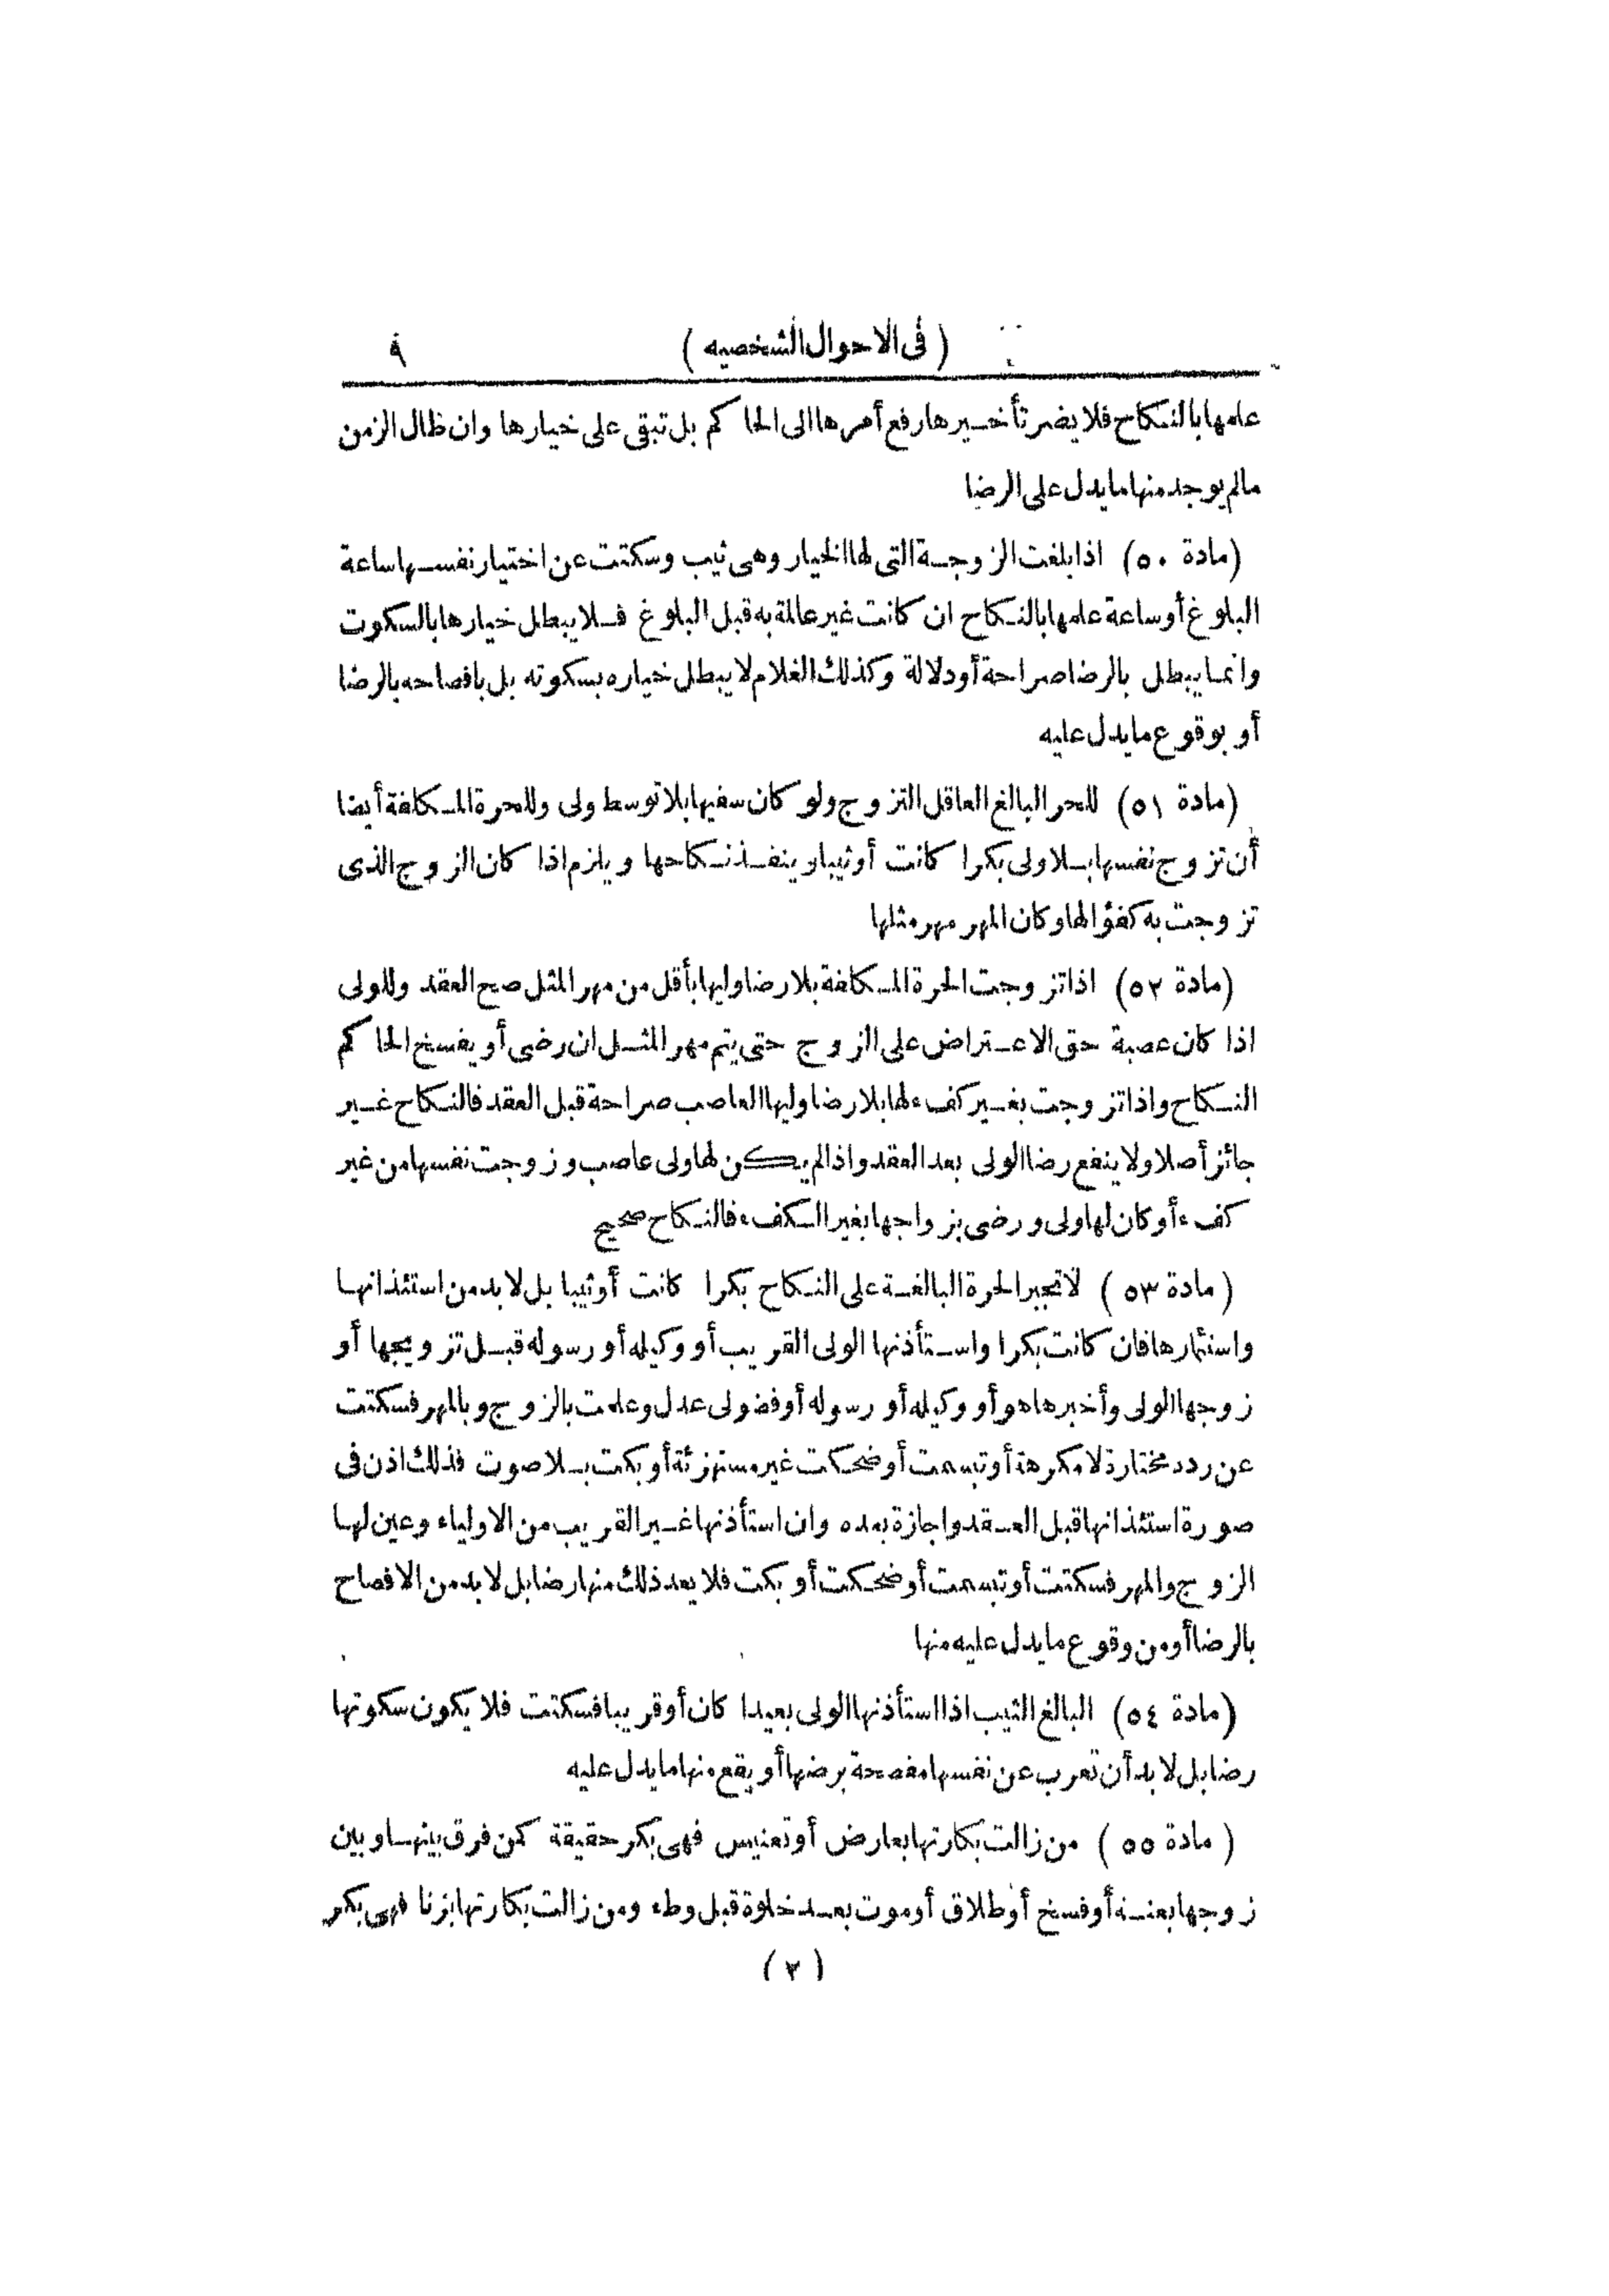 (فى الاحوال الشخصيه) ٩
علمها بالنكاح فلا يضر تأخيرها رفع أمرها الى الحاكم بل تبقى على خيارها وان طال الزمن
مالم يوجد منها ما يدل على الرضا
(مادة ٥٠) اذا بلغت الزوجة التى لها الخيار وهى ثيب وسكتت عن اختيار نفسها ساعة
البلوغ أو ساعة علمها بالنكاح ان كانت غير عالمة به قبل البلوغ فلا يبطل خيارها بالسكوت
وانما يبطل بالرضا صراحة أو دلالة وكذلك الغلام لا يبطل خياره بسكوته بل بافصاحه بالرضا
أو بوقوع ما يدل عليه
(مادة ٥١) للحر البالغ العاقل التزوج ولو كان سفيها بلا توسط ولى وللحرة المكلفة أيضا
أن تزوج نفسها بلا ولى بكرا كانت أو ثيبا وينفذ نكاحها ويلزم اذا كان الزوج الذى
تزوجت به كفؤا لها وكان المهر مهر مثلها
(مادة ٥٢) اذا تزوجت الحرة المكلفة بلا رضا وليها بأقل من مهر المثل صح العقد وللولى
اذا كان عصبة حق الاعتراض على الزوج حتى يتم مهر المثل ان رضى أو يفسخ الحاكم
النكاح واذا تزوجت بغير كفء لها بلا رضا وليها العاصب صراحة قبل العقد فالنكاح غير
جائز أصلا ولا ينفع رضا الولى بعد العقد واذا لم يكن لها ولى عاصب وزوجت نفسها من غير
كفء أو كان لها ولى ورضى بزواجها بغير الكفء فالنكاح صحيح
(مادة ٥٣) لا تجبر الحرة البالغة على النكاح بكرا كانت أو ثيبا بل لا بد من استئذانها
واستئمارها فان كانت بكرا واستأذنها الولى القريب أو وكيله أو رسوله قبل تزويجها أو
زوجها الولى وأخبرها هو أو وكيله أو رسوله أو فضولى عدل وعلمت بالزوج وبالمهر فسكتت
عن ردد مختارة لا مكرهة أو تبسمت أو ضحكت غير مستهزئة أو بكت بلا صوت فذلك اذن فى
صورة استئذانها قبل العقد واجازة بعده وان استأذنها غير القريب من الاولياء وعين لها
الزوج والمهر فسكتت أو تبسمت أو ضحكت أو بكت فلا يعد ذلك منها رضا بل لا بد من الافصاح
بالرضا أو من وقوع ما يدل عليه منها
(مادة ٥٤) البالغ الثيب اذا استأذنها الولى بعيدا كان أو قريبا فسكتت فلا يكون سكوتها
رضا بل لا بد أن تعرب عن نفسها مفصحة برضها أو يقع منها ما يدل عليه
(مادة ٥٥) من زالت بكارتها بعارض أو تعنيس فهى بكر حقيقة كمن فرق بينها وبين
زوجها بعنه أو فسخ أو طلاق أو موت بعد خلوة قبل وطء ومن زالت بكارتها بزنا فهى بكر
(٢)